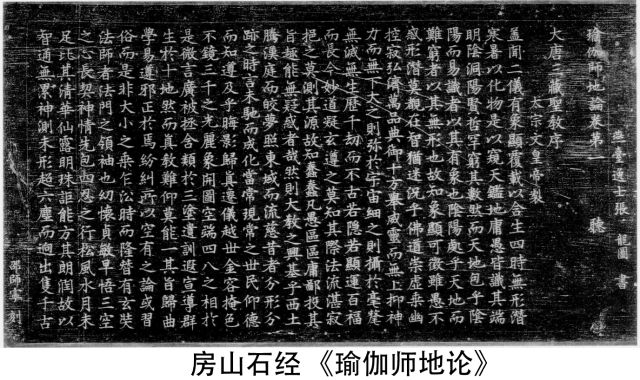 燕臺逸士張龍圖書
瑜伽師地論卷第一 聽
大唐三藏聖教序
太宗文皇帝製
蓋聞二儀有象顯覆載以含生四時無形潛
寒暑以化物是以窺天鑑地庸愚皆識其端
明陰洞陽賢哲罕窮其數然而天地包乎陰
陽而易識者以其有象也陰陽處乎天地而
難窮者以其無形也故知象顯可徵雖愚不
惑形潛莫覩在智猶迷況乎佛道崇虛乘幽
控寂弘濟萬品典御十方舉威靈而無上抑神
力而無下大之則彌於宇宙細之則攝於毫釐
無滅無生歷千劫而不古若隱若顯運百福
而長今妙道凝玄遵之莫知其際法流湛寂
挹之莫測其源故知蠢蠢凡愚區區庸鄙投其
旨趣能無疑惑者哉然則大教之興基乎西土
騰漢庭而皎夢照東域而流慈昔者分形分
跡之時言未馳而成化當常現常之世民仰德
而知遵及乎晦影歸真遷儀越世金容掩色
不鏡三千之光麗象開圖空端四八之相於
是微言廣被拯含類於三塗遺訓遐宣導群
生於十地然而真教難仰莫能一其旨歸曲
學易遵邪正於焉紛糾所以空有之論或習
俗而是非大小之乘乍沿時而隆替有玄奘
法師者法門之領袖也幼懷貞敏早悟三空
之心長契神情先包四忍之行松風水月未
足比其清華仙露明珠詎能方其朗潤故以
智通無累神測未形超六塵而迥出隻千古
邵師 刻
房山石经《瑜伽师地论》